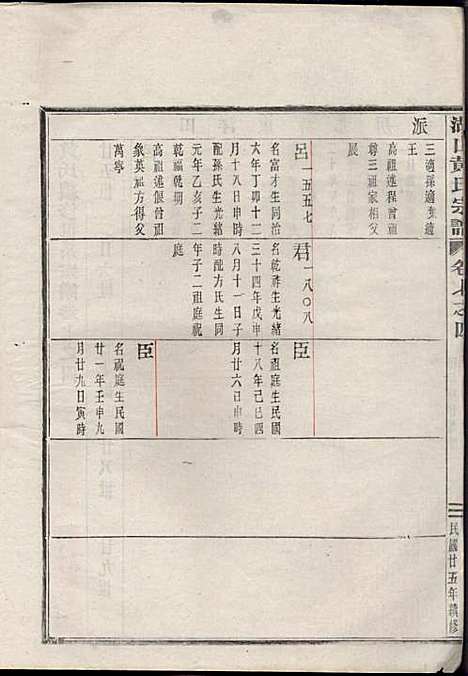 湖山黃氏宗譜
卷之四
民國廿五年續修
派
三適孫適葉適
王
高祖述程曾祖
尊三祖家相父
展
呂一五五七
名富才生同治
六年丁卯十二
月十八日申時
配孫氏生光緒
元年乙亥子二
乾福乾朝
高祖述偃曾祖
象英福方得父
萬寧
君一八〇八
名乾祥生光緒
三十四年戊申
八月十一日子
時配方氏生同
年子二祖庭祝
庭
臣
名祖庭生民國
十八年己巳四
月廿六日申時
臣
名祝庭生民國
廿一年壬申九
月廿九日寅時